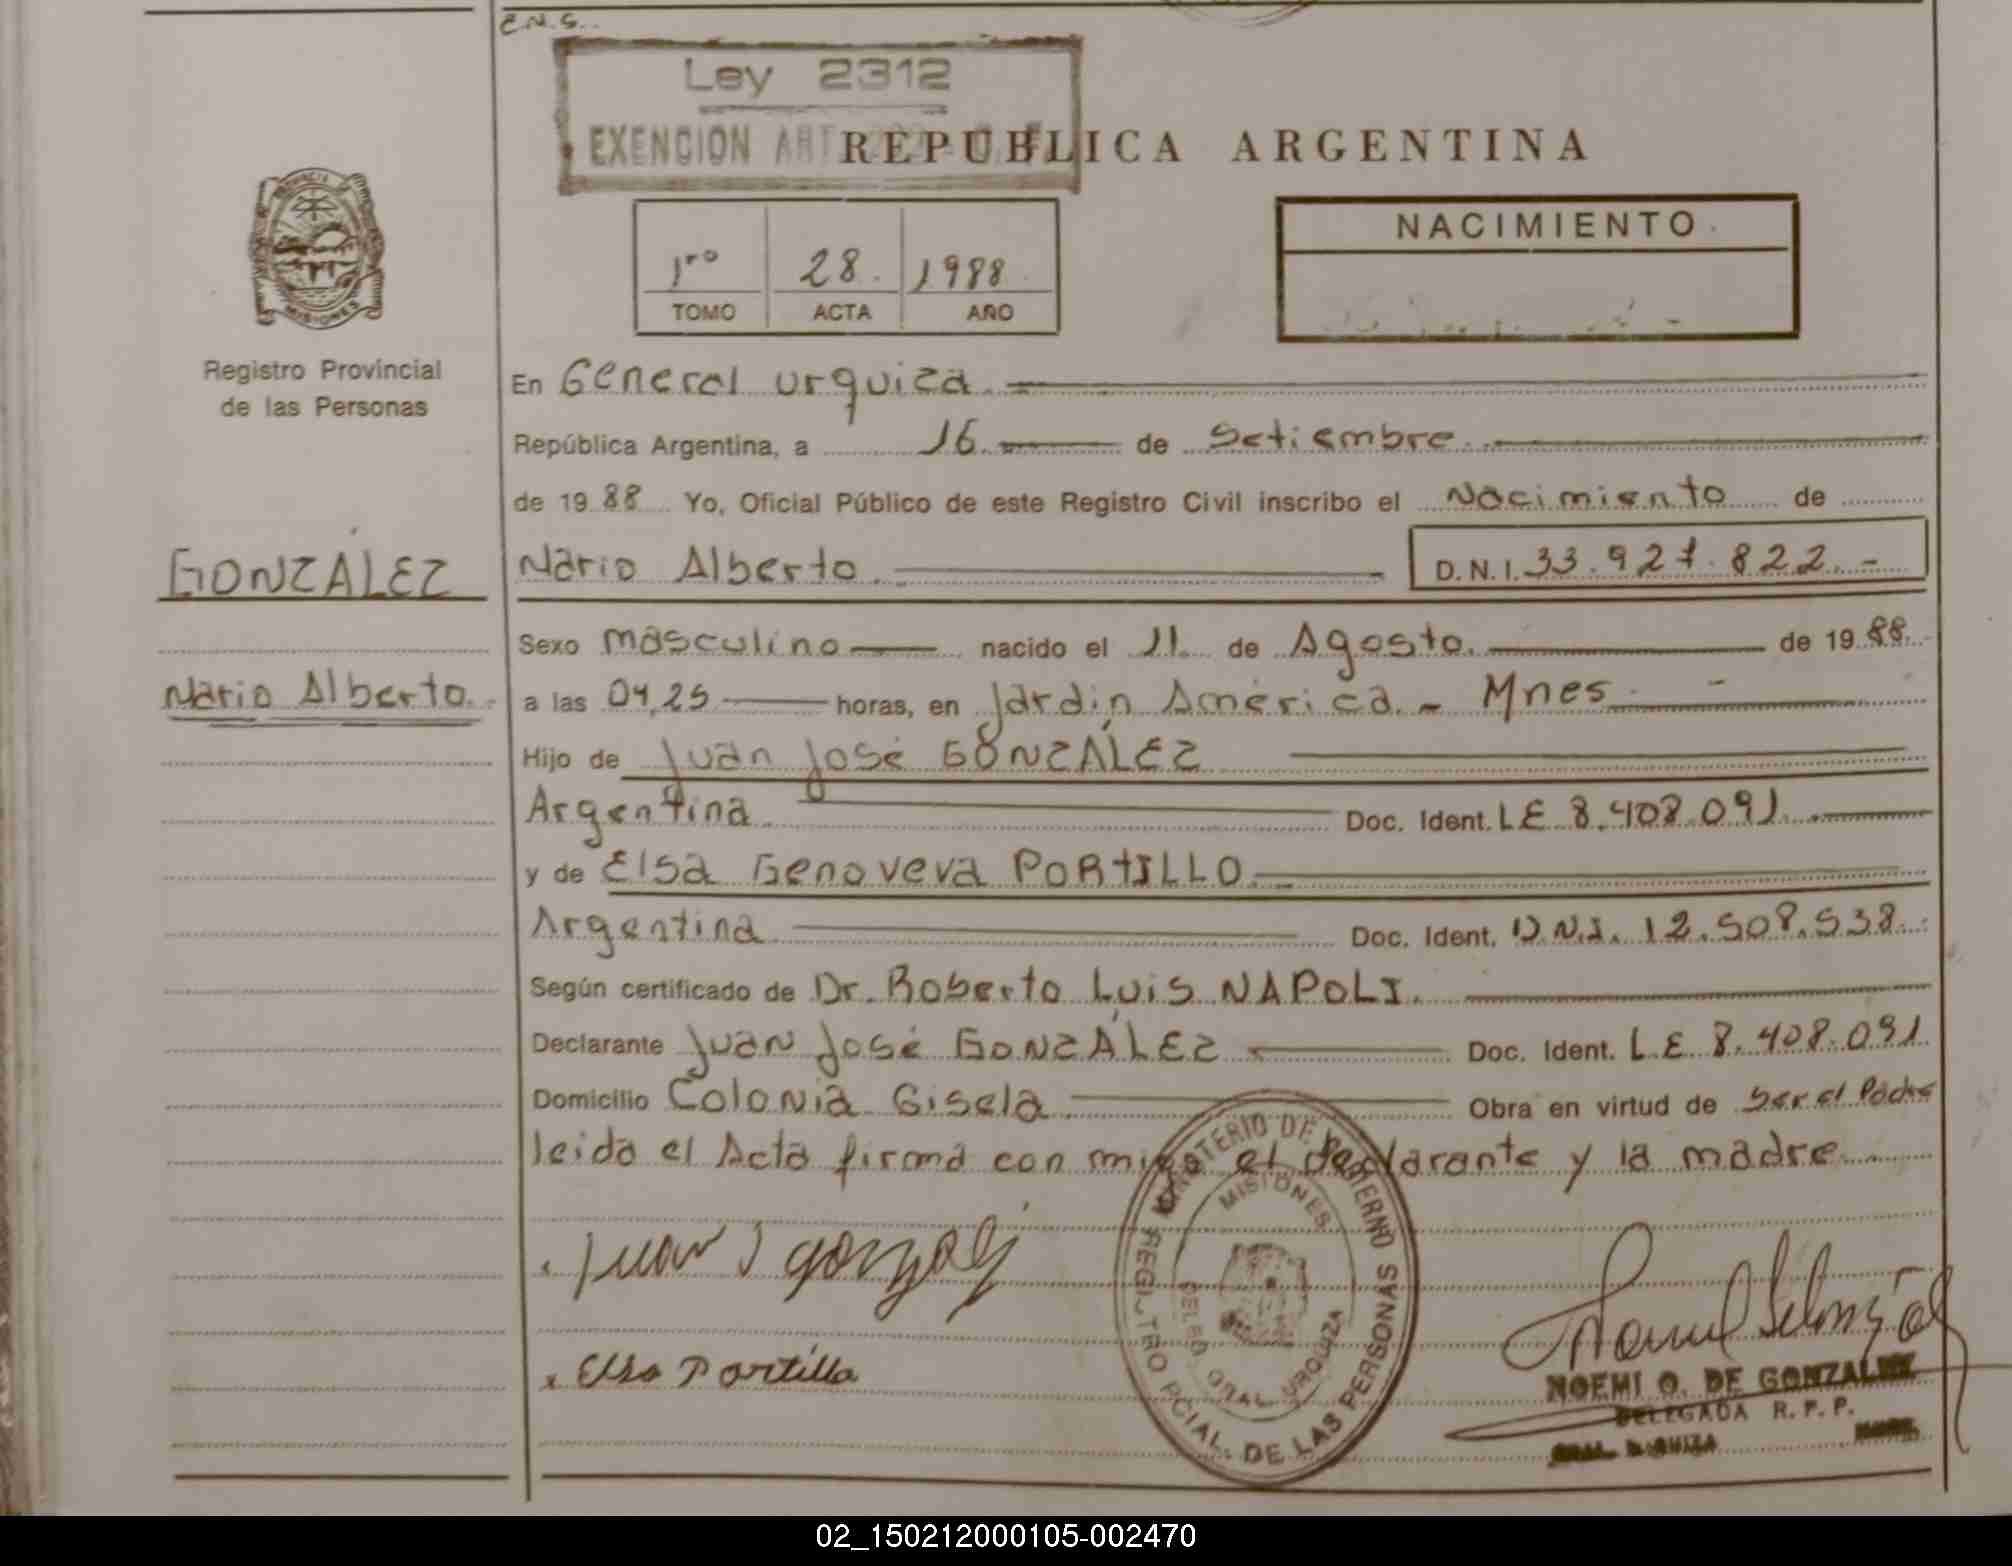 C.N.S.
Ley 2312
EXENCION ART
REPUBLICA ARGENTINA
NACIMIENTO
1ro 28. 1988
TOMO ACTA AÑO
PROVINCIA
MISIONES
Registro Provincial
de las Personas
En General Urquiza.
República Argentina, a 16 de Setiembre
de 1988 Yo, Oficial Público de este Registro Civil inscribo el Nacimiento de
GONZÁLEZ
Mario Alberto. D.N.I. 33.927.822.-
Sexo masculino nacido el 11 de Agosto. de 1988.
Mario Alberto.
a las 04,25 horas, en Jardín América - Mnes.
Hijo de Juan José GONZÁLEZ
Argentina Doc. Ident. LE 8.408.091.
y de Elsa Genoveva PORTILLO.
Argentina Doc. Ident. D.N.I. 12.508.538.
Según certificado de Dr. Roberto Luis NAPOLI.
Declarante Juan José GONZÁLEZ Doc. Ident. L.E 8.408.091
Domicilio Colonia Gisela Obra en virtud de ser el Padre
leida el Acta firma con migo el declarante y la madre
MINISTERIO DE GOBIERNO
MISIONES
REGISTRO PCIAL. DE LAS PERSONAS
DELEG. GRAL. URQUIZA
Juan J Gonzalez
Elsa Portillo
NOEMI O. DE GONZALEZ
DELEGADA R. P. P.
GRAL. URQUIZA
02_150212000105-002470